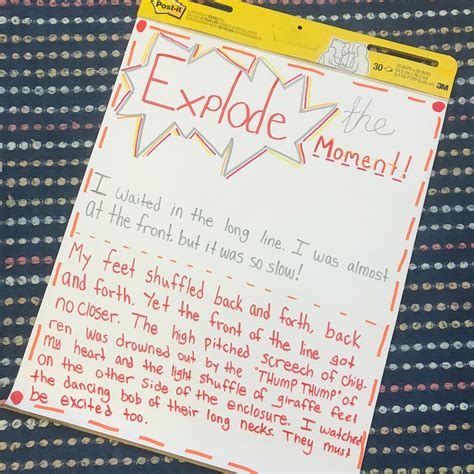 Post-it
30
3M
Explode the
Moment!
I waited in the long line. I was almost
at the front, but it was so slow!
My feet shuffled back and forth, back
and forth. Yet the front of the line got
no closer. The high pitched screech of child-
ren was drowned out by the "THUMP THUMP" of
my heart and the light shuffle of giraffe feet
on the other side of the enclosure. I watched
the dancing bob of their long necks. They must
be excited too.